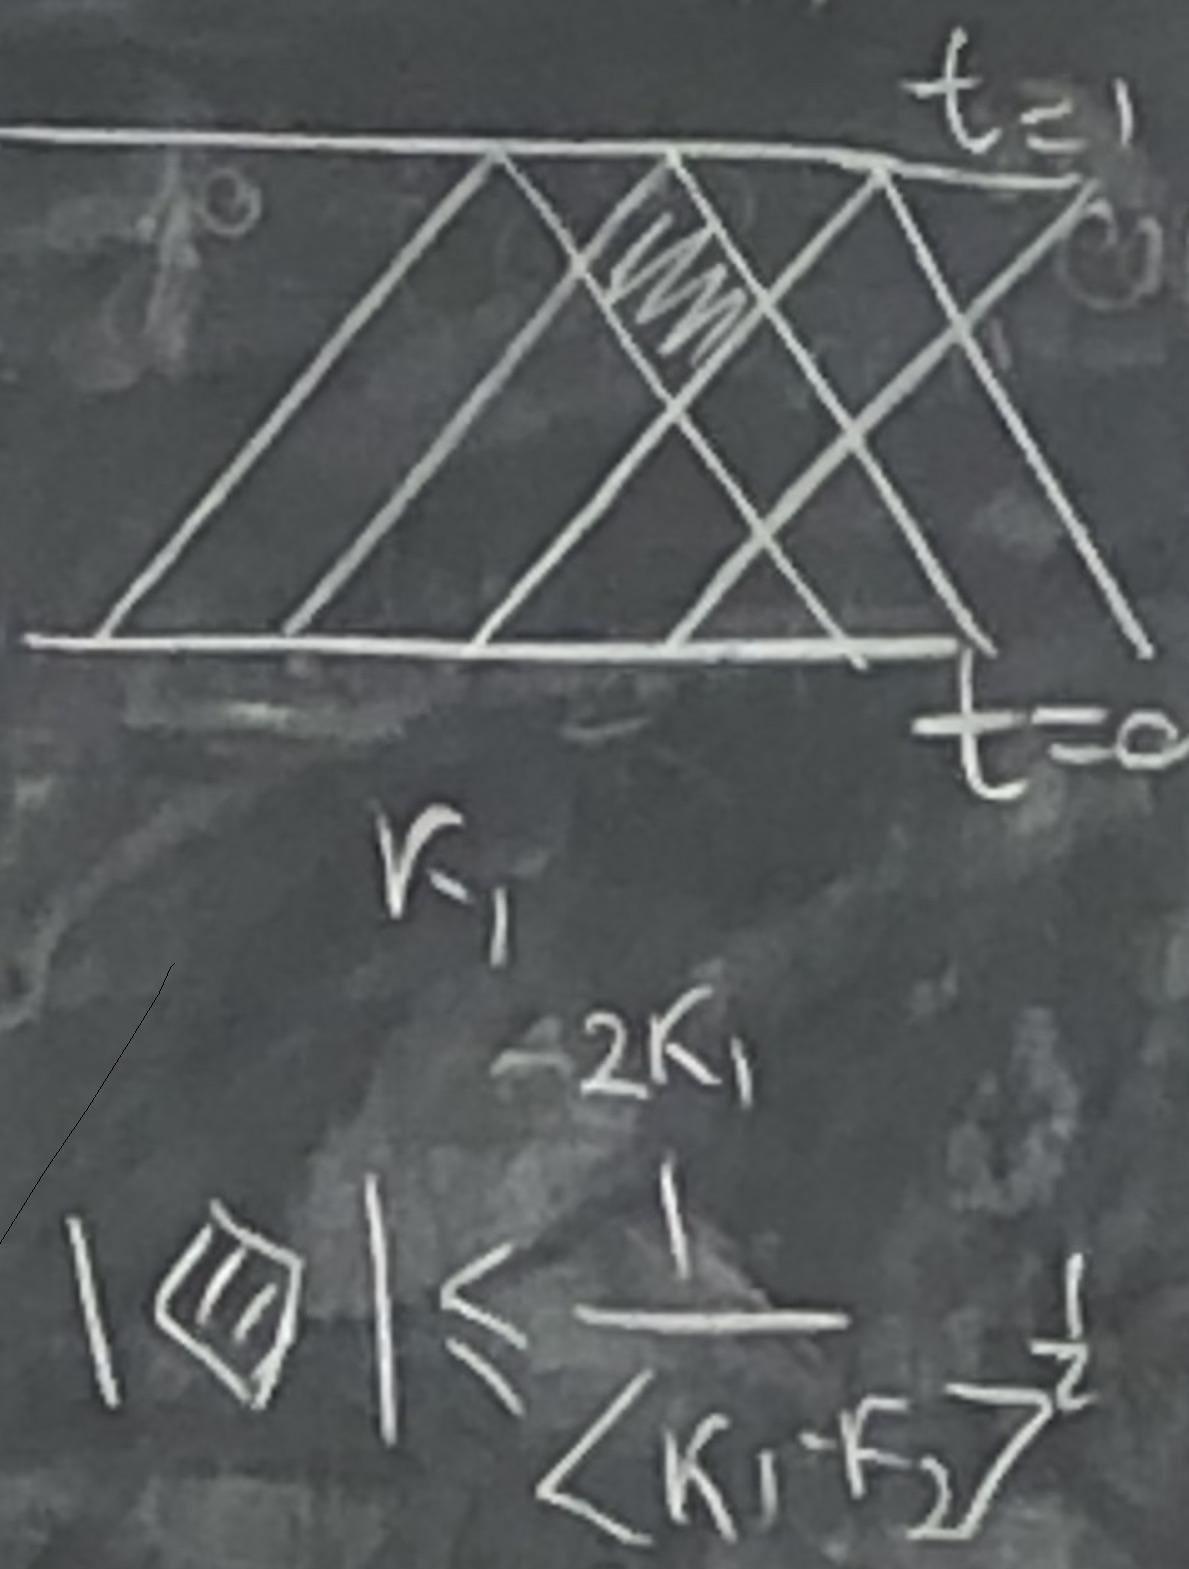 t=1
t=0
K₁
-2K₁
| | ≤ 1/⟨K₁-K₂⟩^{1/2}